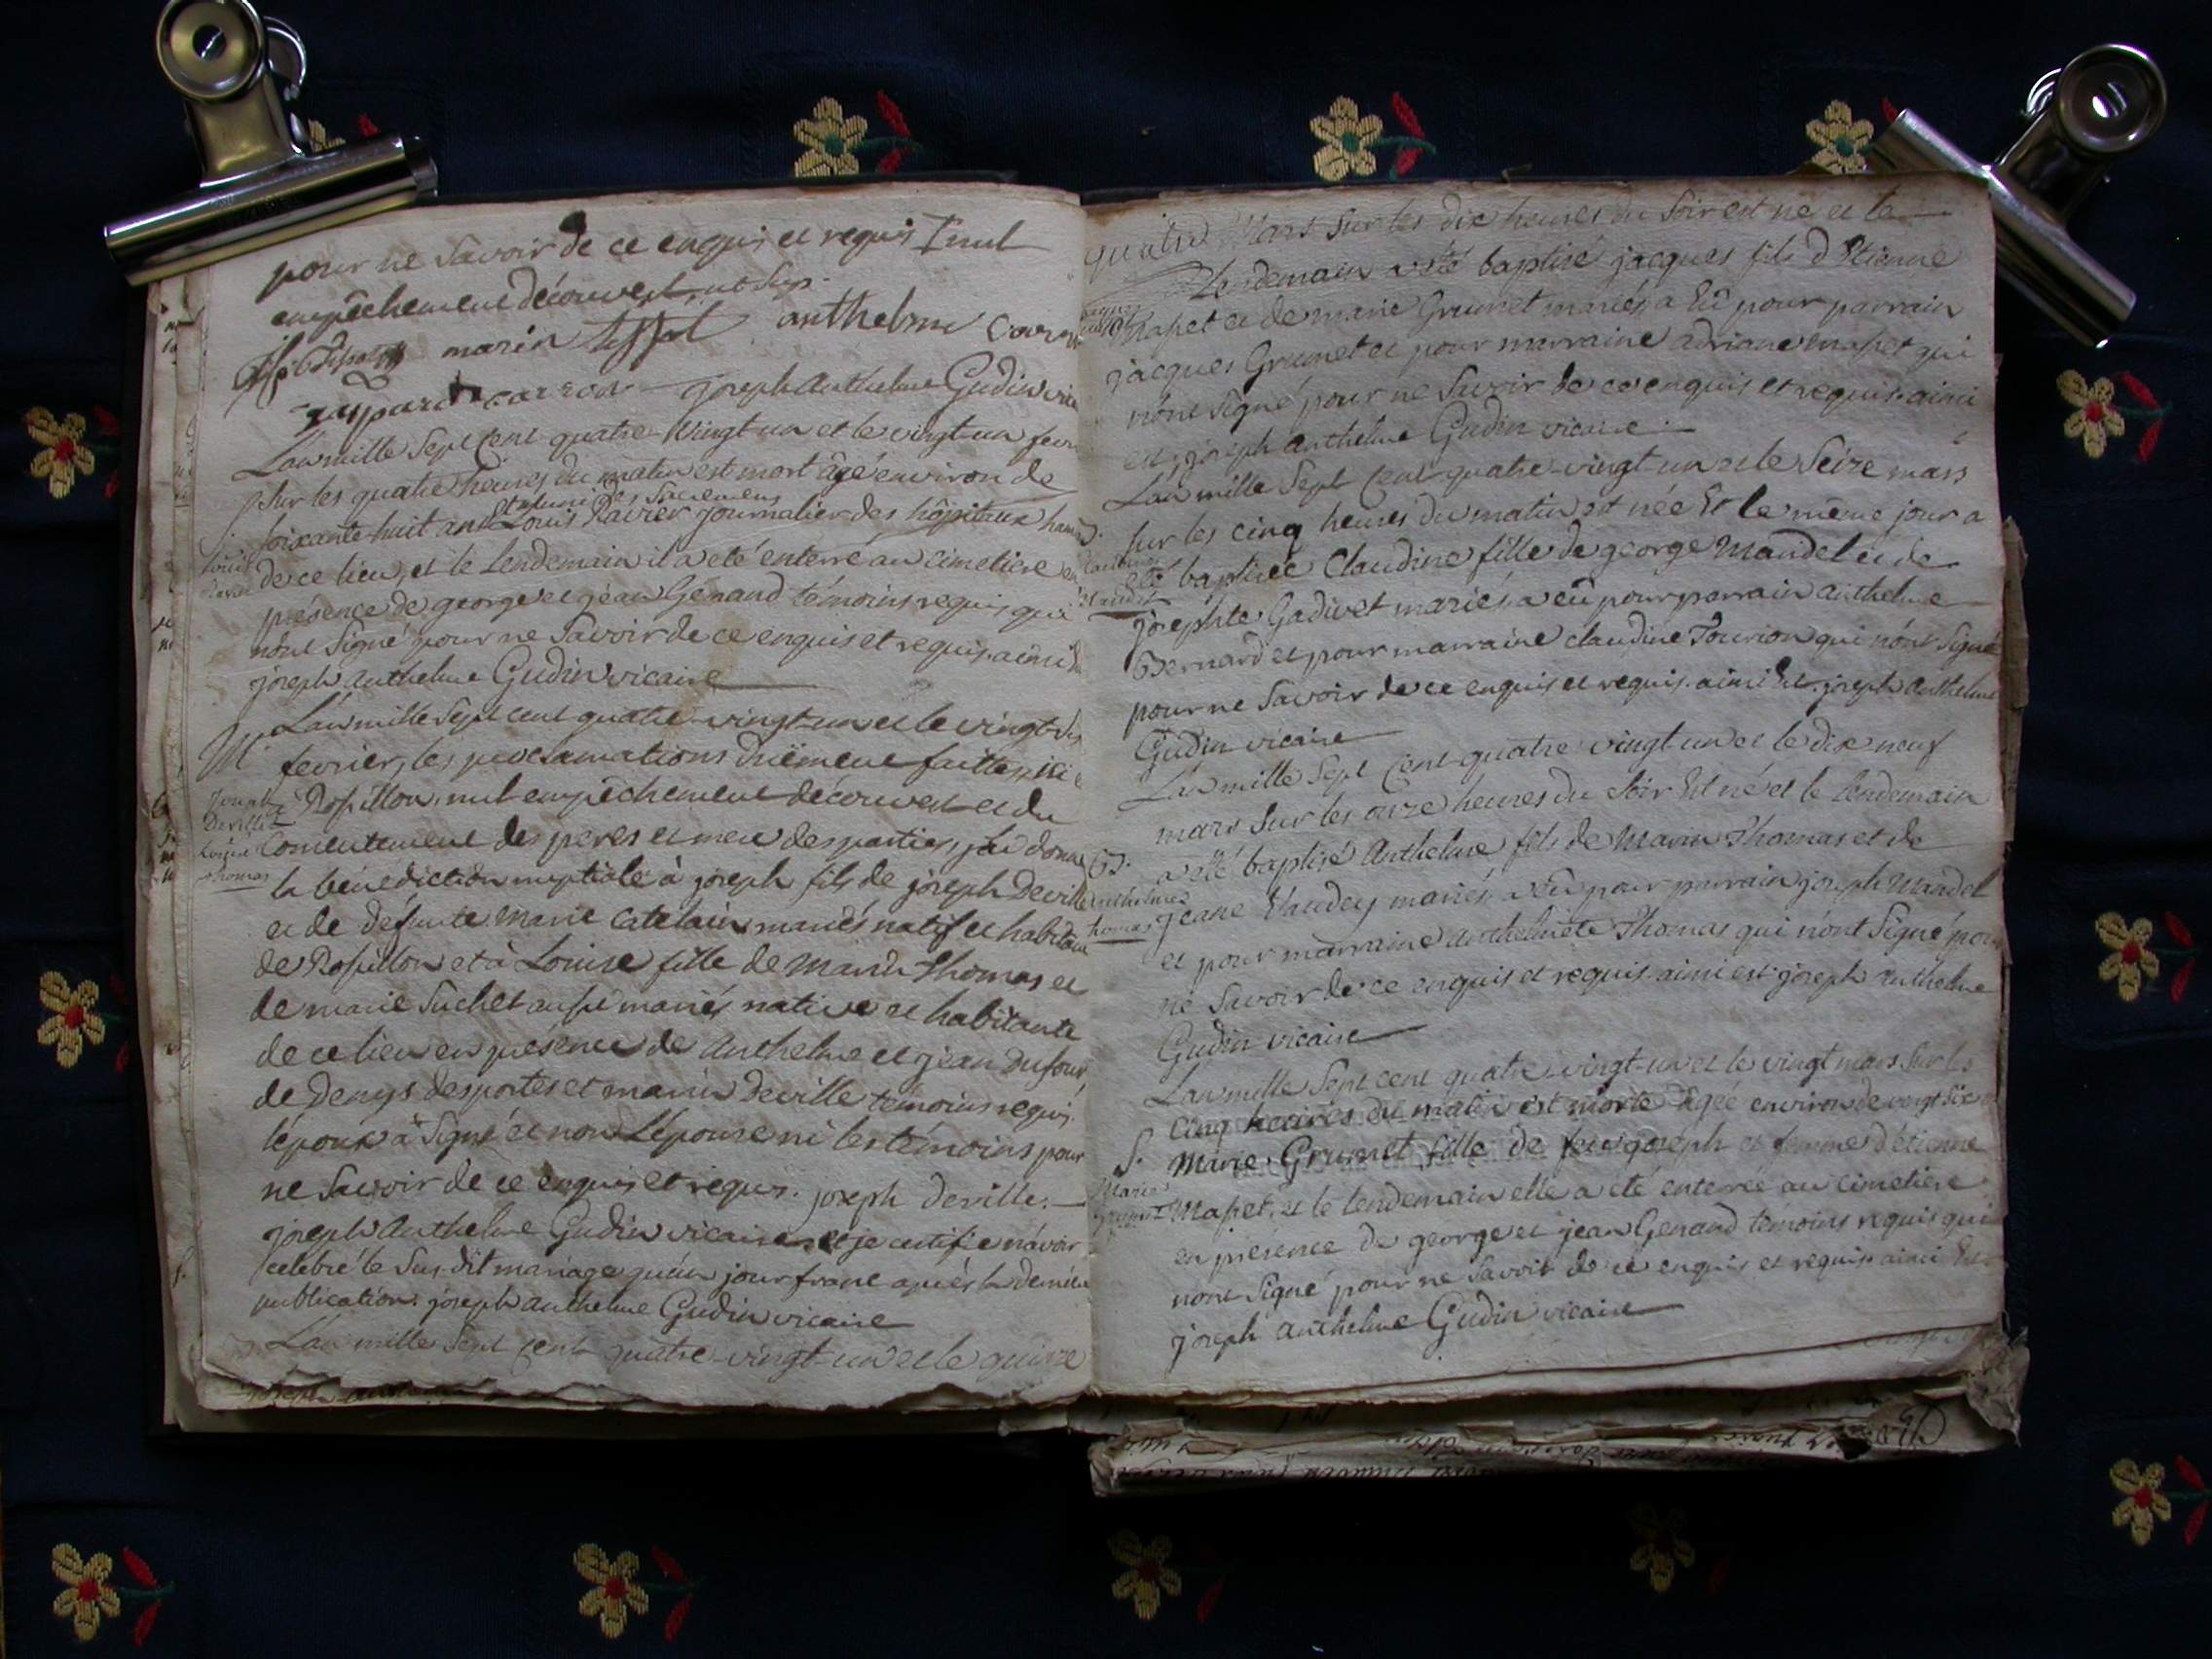 pour ne Savoir de ce enquis et requis Énul
empêchement découvert, ut Sup.
marin tissot anthelme Carron
gaspard carron joseph Anthelme Gudin vic
L'an mille Sept Cent quatre-vingt-un et le vingt-un fevr
Sur les quatre heures du matin est mort âgé environ de
et muni des Sacremens
Soixante-huit ans Louis Ravier journalier des hôpitaux
de ce lieu, et le Lendemain il a eté enterré au cimetiere en
présence de george et jean Genand témoins requis qui
n'ont Signé pour ne Savoir de ce enquis et requis. ainsi
joseph Anthelme Gudin vicaire
S.
Louis
Ravier
L'an mille Sept cent quatre-vingt-un et le vingt-six
fevrier, les proclamations duëment faittes, ici
Rossillon, nul empêchement découvert et du
Consentement des peres et mere des parties, j'ai donné
la bénédiction nuptiale à joseph fils de joseph Deville
et de défunte marie Catelain mariés natif et habitant
de Rossillon et à Louise fille de Marin Thomas et
de marie Suchet aussi mariés native et habitante
de ce lieu en présence de Anthelme et jean Dufour
de Denys desportes et marin deville témoins requis.
l'époux a Signé et non L'épouse ni les témoins pour
ne Savoir de ce enquis et requis. joseph deville.
joseph Anthelme Gudin vicaire et je certifie n'avoir
célébré le Sus-dit mariage qu'un jour franc après la derniere
publication. joseph anthelme Gudin vicaire
M.
Deville
Louise
thomas
L'an mille Sept Cent quatre-vingt-un et le quinze
quatre Mars Sur les dix heures du Soir est né et le
Lendemain a été baptisé jacques fils d'Etienne
Mapet et de marie Grumet mariés, a Eû pour parrain
jacques Grumet et pour marraine adriane mapet qui
n'ont Signé pour ne Savoir de ce enquis et requis. ainsi
est, joseph anthelme Gudin vicaire.
L'an mille Sept Cent quatre-vingt-un et le Seize mars
Sur les cinq heures du matin est née Et le même jour a
eté baptisée Claudine fille de george Mandel et de
josephte Gadivet mariés, a eû pour parrain anthelme
Bernard et pour marraine claudine Tourion qui n'ont Signé
pour ne Savoir de ce enquis et requis. ainsi Est. joseph anthelme
Gudin vicaire
L'an mille Sept Cent quatre vingt-un et le dix neuf
mars Sur les onze heures du Soir Est né et le Lendemain
a eté baptisé Anthelme fils de Marin Thomas et de
jeane Vaudey mariés, a eû pour parrain joseph Mandel
et pour marraine anthelmete Thomas qui n'ont Signé pour
ne Savoir de ce enquis et requis. ainsi est. joseph anthelme
Gudin vicaire
B.
anthelme
thomas
L'an mille Sept cent quatre-vingt-un et le vingt mars Sur les
cinq heures du matin est morte âgée environ de vingt six
Marie Grumet fille de feu joseph et femme d'étienne
Mapet, et le lendemain elle a été enterrée au cimetiere
en présence de george et jean Genand témoins requis qui
n'ont Signé pour ne Savoir de ce enquis et requis. ainsi Est
joseph anthelme Gudin vicaire
S.
Marie
Grumet